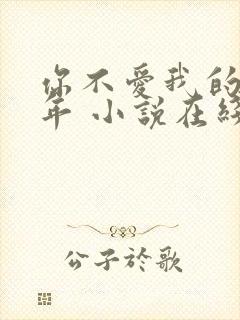 你不愛我的
年 小說在線
公子於歌